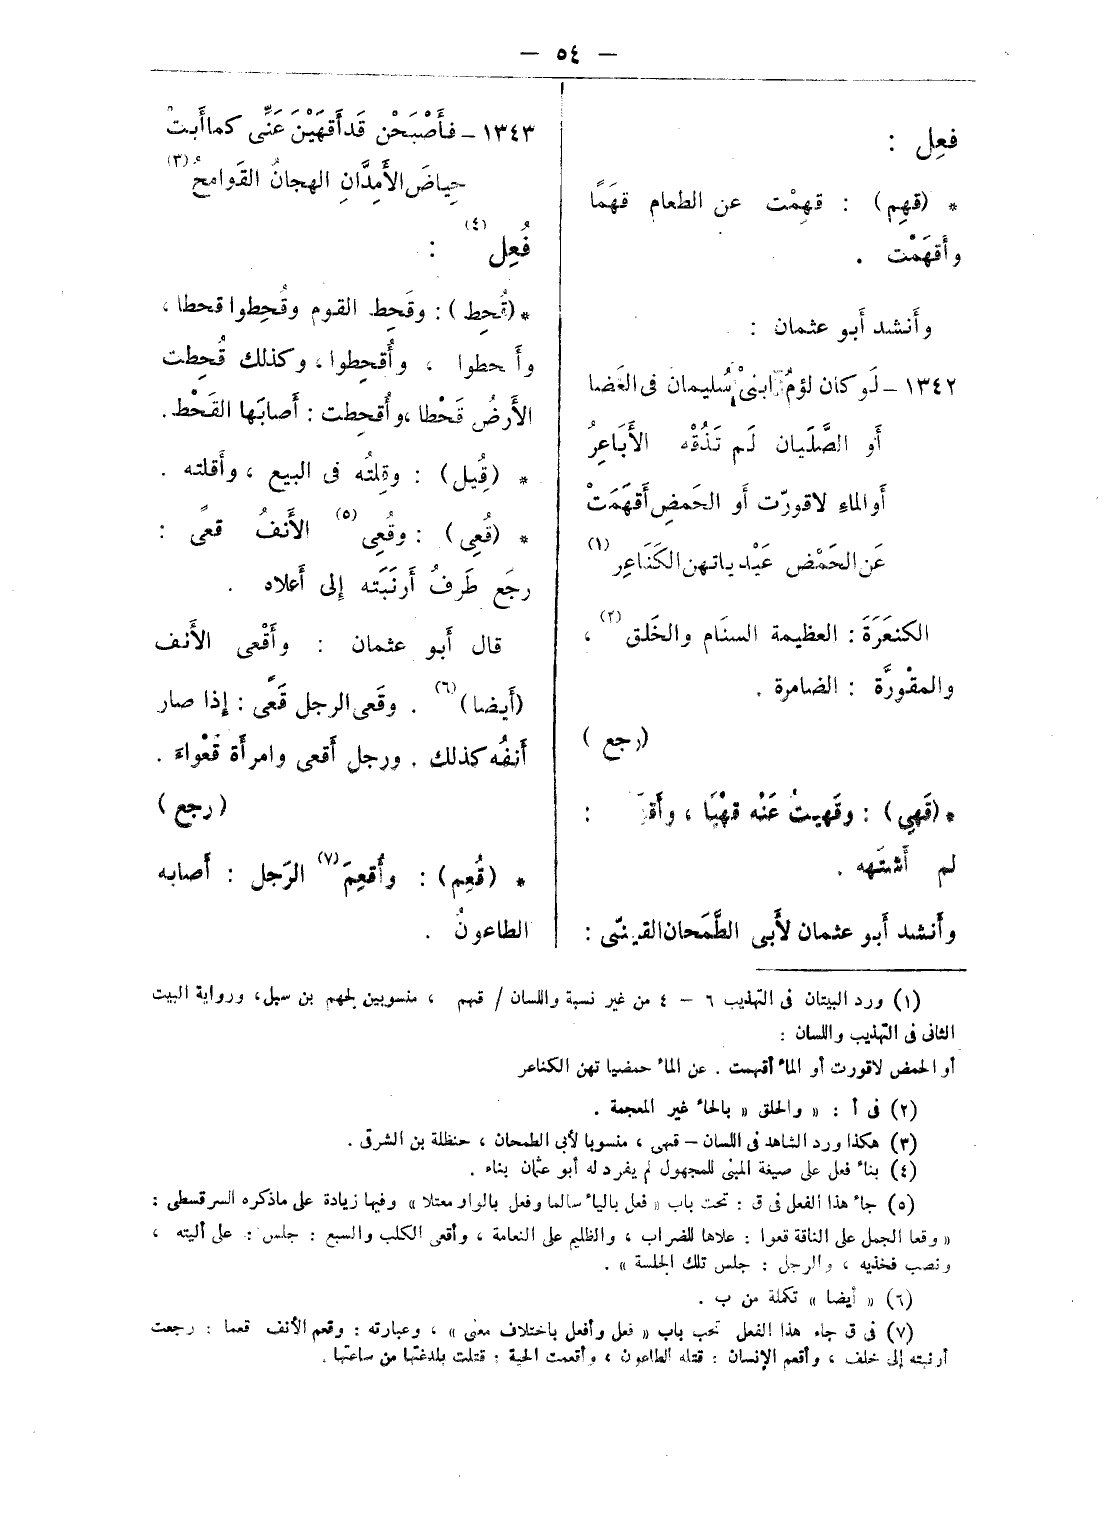 — ٥٤ —
فعِل :
* (قهِم) : قهِمْت عن الطعام قهَمًا
وأَقهَمْت .
وأَنشد أَبو عثمان :
١٣٤٢ – لَو كان لؤمُ ابنىْ سُليمان فى الغَضا
أَو الصَّلَيان لَم تَذُقْه الأَباعِرُ
أَو الماءِ لاقورّت أَو الحَمضِ أَقهَمَتْ
عَن الحَمْض عَيْدياتهن الكَنَاعِر (١)
الكنعَرَةَ : العظيمة السنَام والخَلق (٢) ،
والمقْورَّة : الضامرة .
(رجع )
* (قَهِى) : وقَهيتُ عَنْه قهْيًا ، :
لم أَشتَهه .
وأَنشد أَبو عثمان لأَبى الطَّمَحان القينىّ :
١٣٤٣ – فأَصْبَحْن قَد أَقهَيْنَ عَنِّى كما أَبتْ
حِياضَ الأَمِدَّانِ الهجانُ القَوامحُ (٣)
فُعِل (٤) :
* (قُحِط ) : وقَحِط القوم وقُحِطوا قحطا ،
، وأُقحِطوا ، وكذلك قُحِطت
الأَرضُ قَحْطا ، وأُقحطت : أَصابَها القَحْط .
* (قِيل) : وقِلتُه فى البيع ، وأَقلته .
* (قُعِى) : وقُعِى (٥) الأَنفُ قعًى :
رجَع طَرفُ أَرنَبَته إلى أَعلاه .
قال أَبو عثمان : وأَقْعى الأَنف
(أَيضا) (٦) . وقَعى الرجل قَعًى : إذا صار
أَنفُه كذلك . ورجل أَقعى وامرأَة قَعْواءَ .
(رجع )
* (قُعِم) : وأُقعِمَ (٧) الرَجل : أَصابه
الطاعونُ .
(١) ورد البيتان فى التهذيب ٦ – ٤ من غير نسبة واللسان / قهم ، منسوبين لجهم بن سبل، ورواية البيت
الثانى فى التهذيب واللسان :
أو الحمض لاقورت أو الماء أقهمت . عن الماء حمضيا تهن الكناعر
(٢) فى أ : « والحلق » بالحاء غير المعجمة .
(٣) هكذا ورد الشاهد فى اللسان – قهى ، منسوبا لأبى الطمحان ، حنظلة بن الشرق .
(٤) بناء فعل على صيغة المبنى للمجهول لم يفرد له أبو عثمان بناء .
(٥) جاء هذا الفعل فى ق : تحت باب « فعل بالياء سالما وفعل بالواو معتلا » وفيها زيادة على ماذكره السرقسطى :
« وقعا الجمل على الناقة قعوا : علاها للضراب ، والظليم على النعامة ، وأقعى الكلب والسبع : جلس : على أليته ،
ونصب فخذيه ، والرجل : جلس تلك الجلسة » .
(٦) « أيضا » تكملة من ب .
(٧) فى ق جاء هذا الفعل تحب باب « فعل وأفعل باختلاف معنى » ، وعبارته : وقعم الأنف قعما : رجعت
أرنبته إلى خلف ، وأقعم الإنسان : قتله الطاعون ، وأقعمت الحية : قتلت بلدغتها من ساعتها .